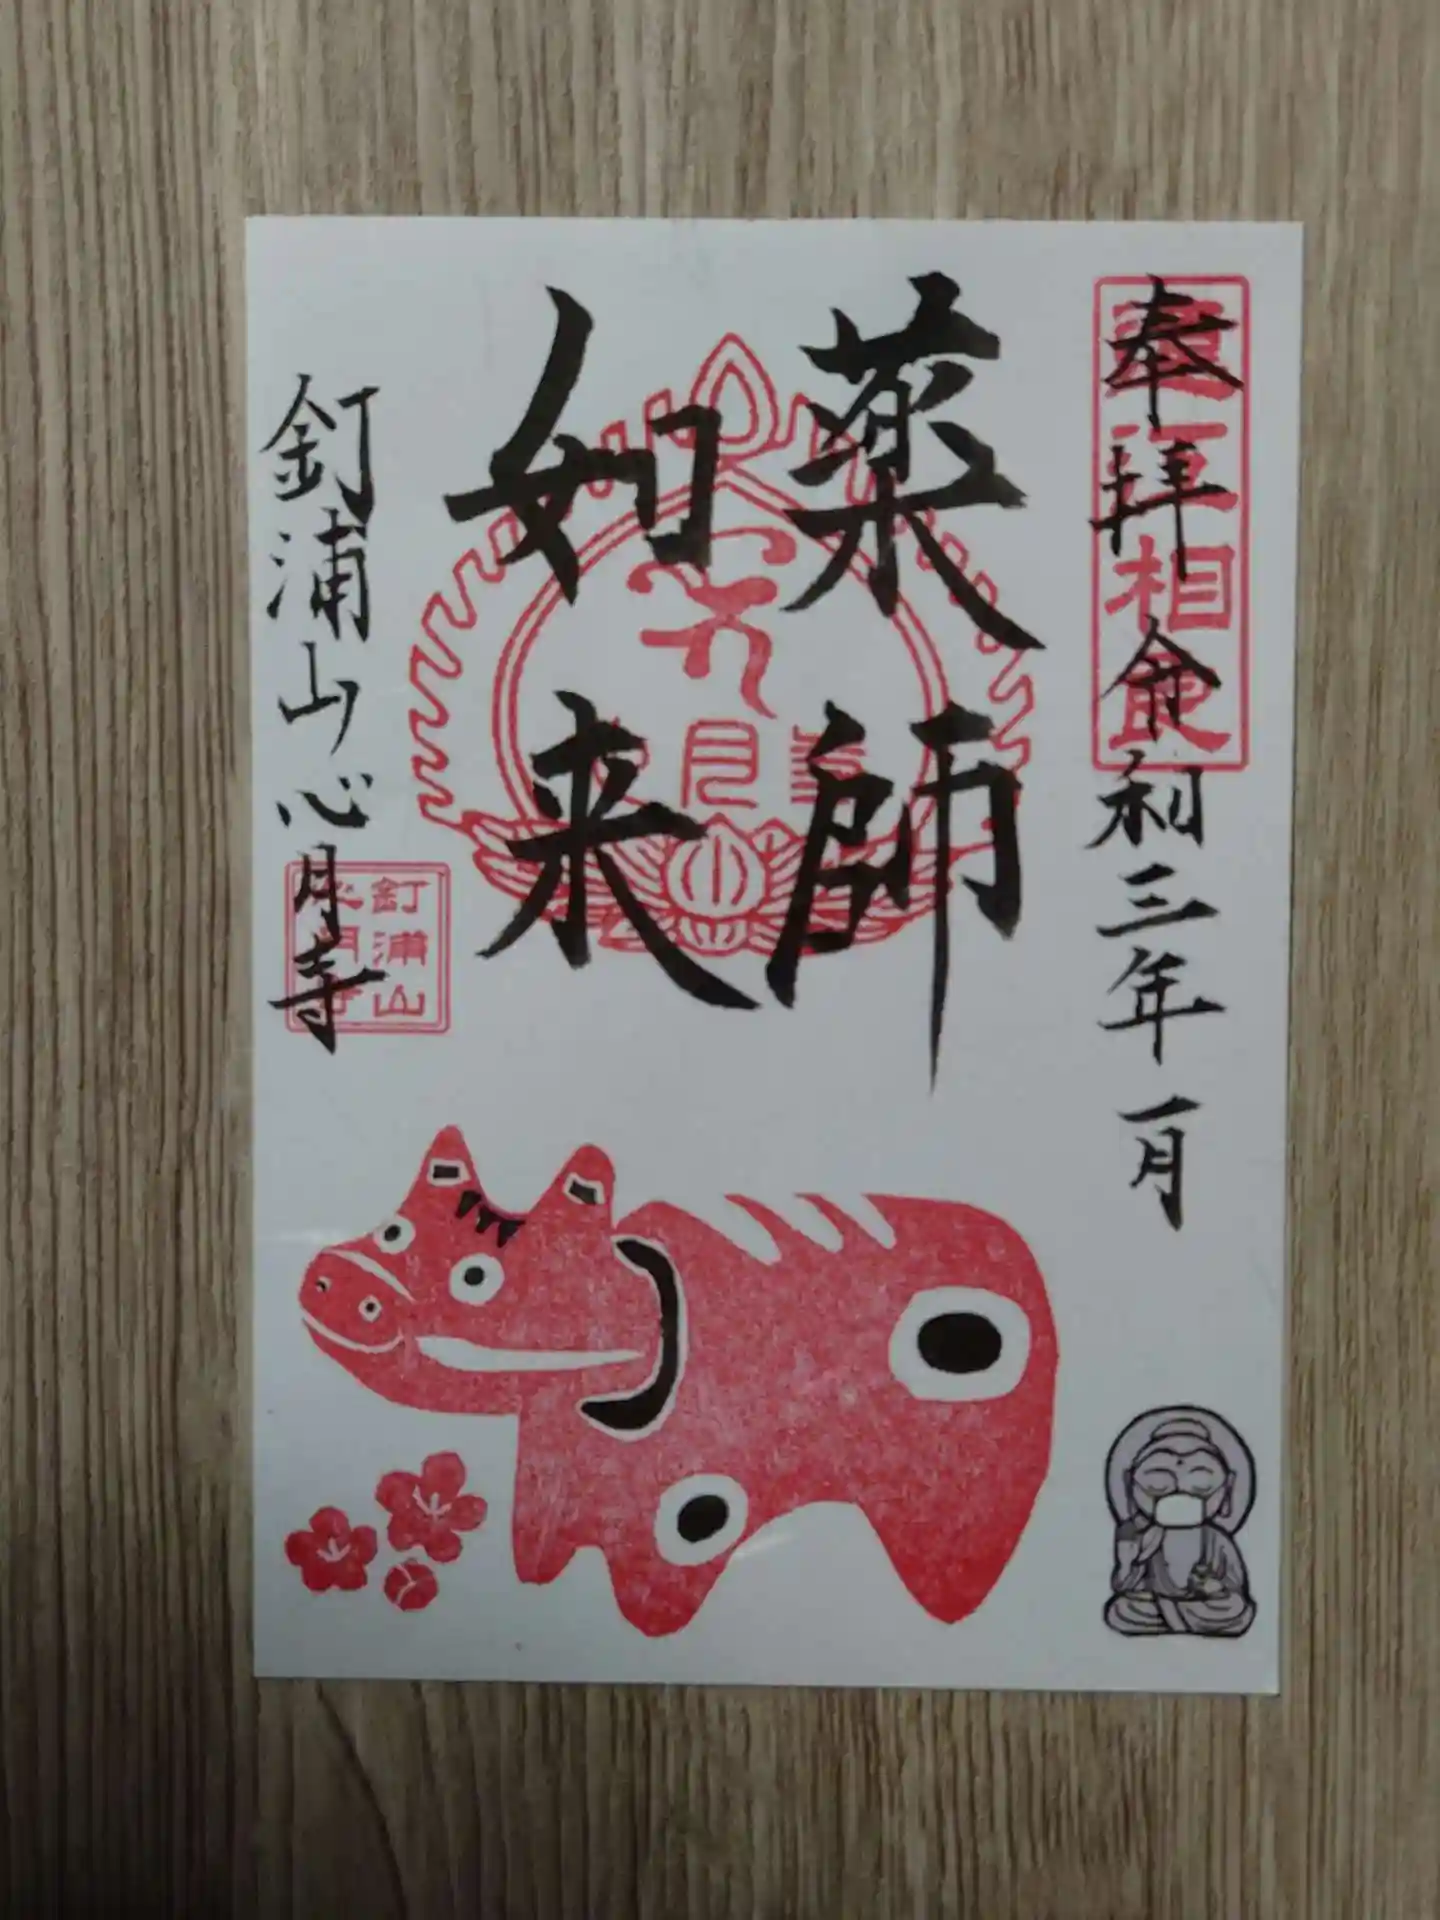 奉拝 令和三年一月
薬師
如来
釘浦山心月寺
釘浦山
心月寺